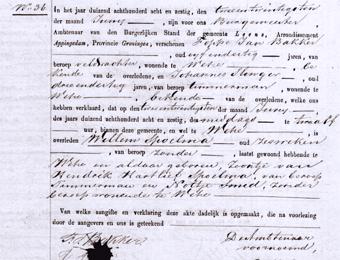 No. 36
In het jaar duizend achthonderd acht en negentig, den tweeentwintigsten
der maand Juny, zijn voor ons Burgemeester
Ambtenaar van den Burgerlijken Stand der gemeente Leens, Arrondissement
Appingedam, Provincie Groningen, verschenen Fokke Jan Bakker
oud vijfendertig jaren, van
beroep veldwachter, wonende te Wehe be-
kende van de overledene, en Johannes Slenger, oud
drieendertig jaren, van beroep timmerman, wonende te
Wehe bekende van de overledene, welke ons
hebben verklaard, dat op den tweeentwintigsten der maand Juny
des jaars duizend achthonderd acht en negentig, des middags te twaalf
ure, binnen deze gemeente, en wel te Wehe is
overleden Willem Spoelma oud zes weken
van beroep zonder laatst gewoond hebbende te
Wehe en aldaar geboren, zoontje van
Hendrik Hartlief Spoelma, van beroep
Timmerman en Nottje Smid, zonder
beroep wonende te Wehe
Van welke aangifte en verklaring deze akte dadelijk is opgemaakt, die na voorlezing
door de aangevers en ons is geteekend
De Ambtenaar
voornoemd,